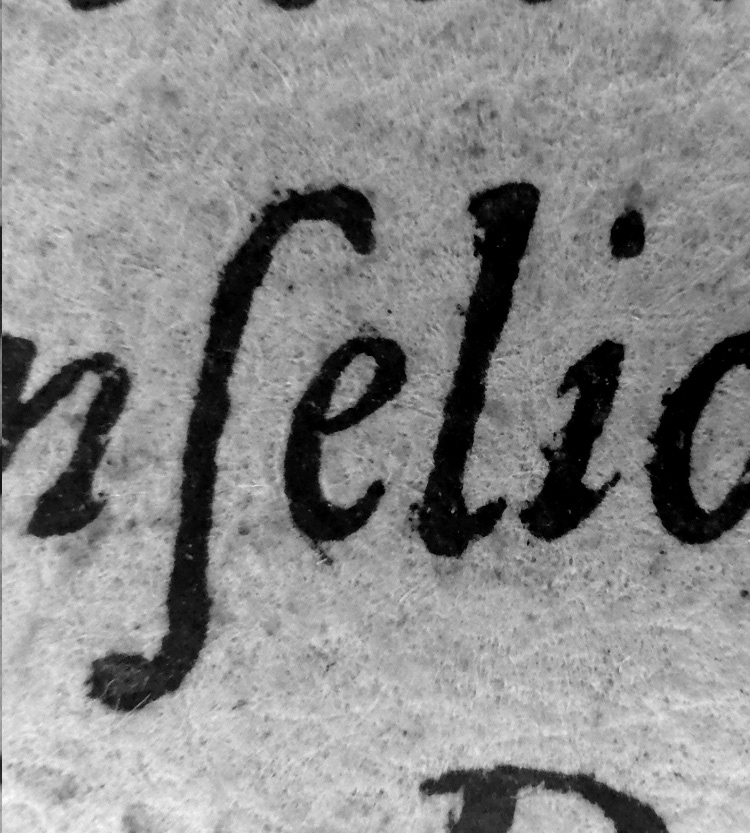 nſelic